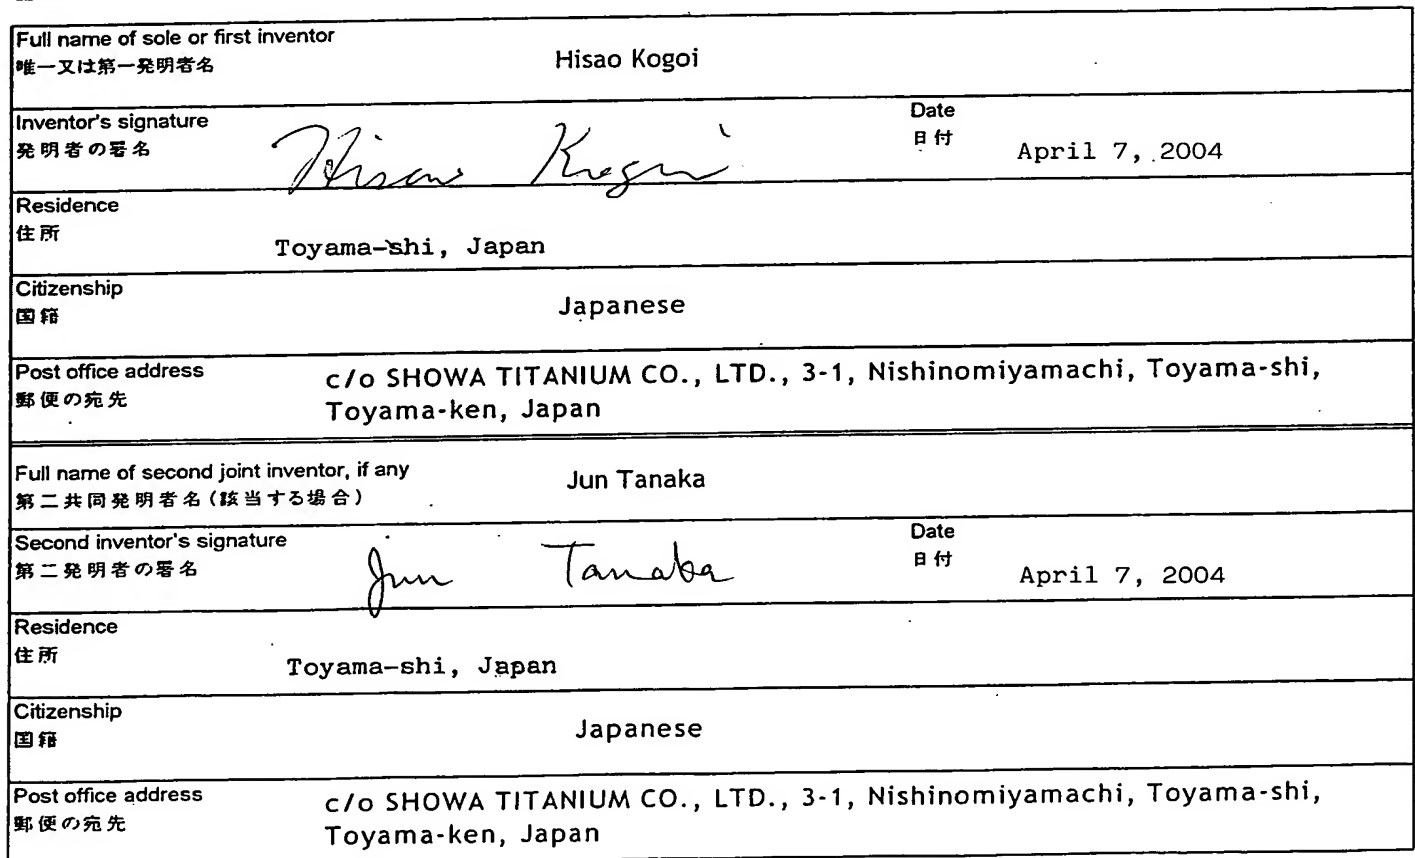 Full name of sole or first inventor
唯一又は第一発明者名
Hisao Kogoi
Inventor's signature
発明者の署名
Hisao Kogoi
Date
日付
April 7, 2004
Residence
住所
Toyama-shi, Japan
Citizenship
国籍
Japanese
Post office address
郵便の宛先
c/o SHOWA TITANIUM CO., LTD., 3-1, Nishinomiyamachi, Toyama-shi,
Toyama-ken, Japan
Full name of second joint inventor, if any
第二共同発明者名(該当する場合)
Jun Tanaka
Second inventor's signature
第二発明者の署名
Jun Tanaka
Date
日付
April 7, 2004
Residence
住所
Toyama-shi, Japan
Citizenship
国籍
Japanese
Post office address
郵便の宛先
c/o SHOWA TITANIUM CO., LTD., 3-1, Nishinomiyamachi, Toyama-shi,
Toyama-ken, Japan